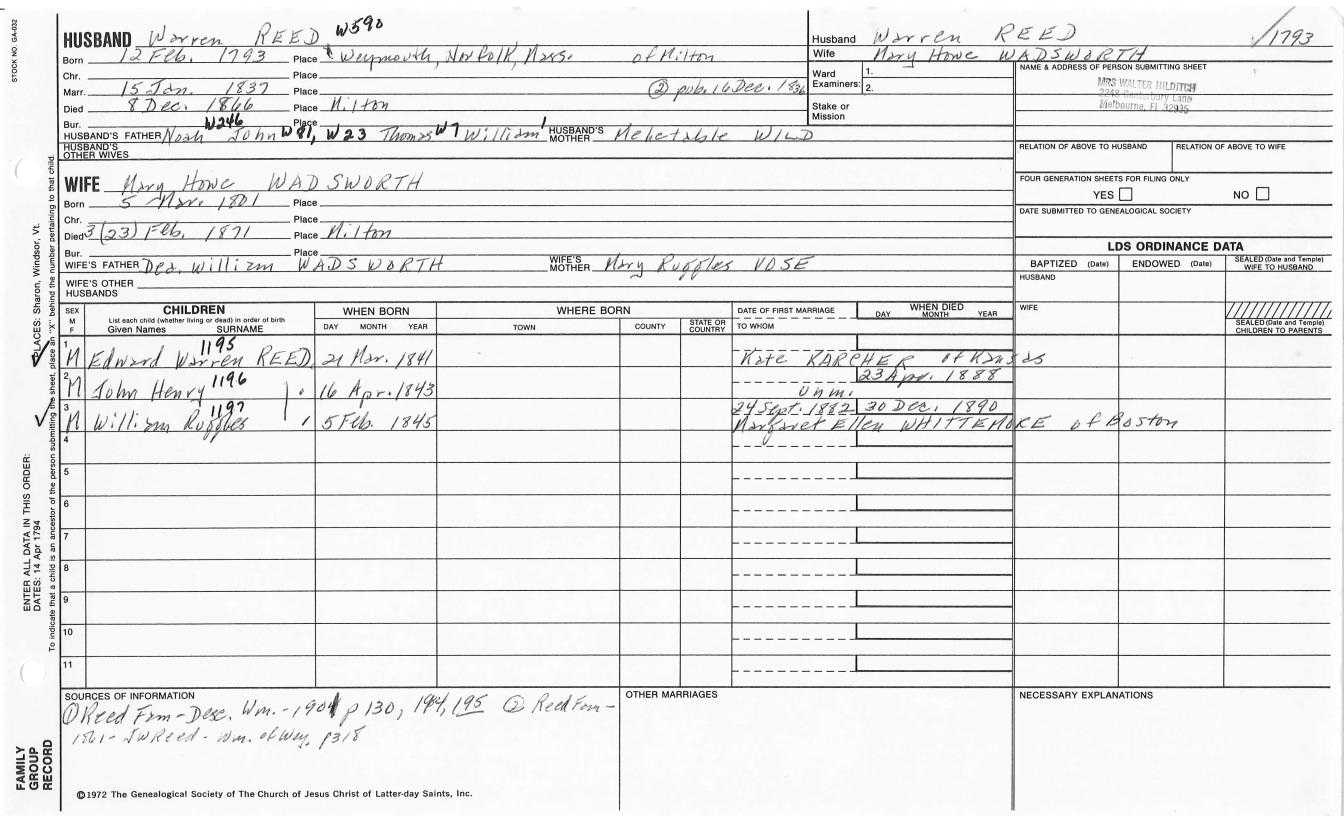 STOCK NO. GA-032
HUSBAND Warren REED W590
Born 12 Feb. 1793 Place Weymouth, Norfolk, Mass. of Milton
Chr. Place
Marr. 15 Jan. 1837 Place ② pub. 16 Dec. 1836
Died 8 Dec. 1866 Place Milton
Bur. Place
W246
HUSBAND'S FATHER Noah John W81, W23 Thomas W7 William' HUSBAND'S MOTHER Mehetable WILD
HUSBAND'S OTHER WIVES
Husband Warren REED /1793
Wife Mary Howe WADSWORTH
Ward Examiners: 1.
2.
Stake or Mission
NAME & ADDRESS OF PERSON SUBMITTING SHEET
MRS WALTER HILDITCH
2248 Canterbury Lane
Melbourne, Fl 32935
RELATION OF ABOVE TO HUSBAND RELATION OF ABOVE TO WIFE
FOUR GENERATION SHEETS FOR FILING ONLY
YES NO
DATE SUBMITTED TO GENEALOGICAL SOCIETY
WIFE Mary Howe WADSWORTH
Born 5 Mar. 1801 Place
Chr. Place
Died 3 (23) Feb. 1871 Place Milton
Bur. Place
WIFE'S FATHER Dea. William WADSWORTH WIFE'S MOTHER Mary Ruggles VOSE
WIFE'S OTHER HUSBANDS
LDS ORDINANCE DATA
BAPTIZED (Date) ENDOWED (Date) SEALED (Date and Temple) WIFE TO HUSBAND
HUSBAND
WIFE
SEALED (Date and Temple) CHILDREN TO PARENTS
SEX M F
CHILDREN
List each child (whether living or dead) in order of birth
Given Names SURNAME
WHEN BORN
DAY MONTH YEAR
WHERE BORN
TOWN COUNTY STATE OR COUNTRY
DATE OF FIRST MARRIAGE
TO WHOM
WHEN DIED
DAY MONTH YEAR
1 M Edward Warren REED 1195 21 Mar. 1841 Kate KARCHER of Kansas
2 M John Henry 1196 16 Apr. 1843 Unm. 23 Apr. 1888
3 M William Ruggles 1197 5 Feb. 1845 24 Sept. 1882 30 Dec. 1890
Margaret Ellen WHITTEMORE of Boston
4
5
6
7
8
9
10
11
SOURCES OF INFORMATION
① Reed Fam - Desc. Wm. - 1901 p 130, 194, 195 ② Reed Fam -
1861 - JW Reed - Wm. of Wey. p318
OTHER MARRIAGES
NECESSARY EXPLANATIONS
©1972 The Genealogical Society of The Church of Jesus Christ of Latter-day Saints, Inc.
FAMILY GROUP RECORD
ENTER ALL DATA IN THIS ORDER:
DATES: 14 Apr 1794
PLACES: Sharon, Windsor, Vt.
To indicate that a child is an ancestor of the person submitting the sheet, place an "X" behind the number pertaining to that child.